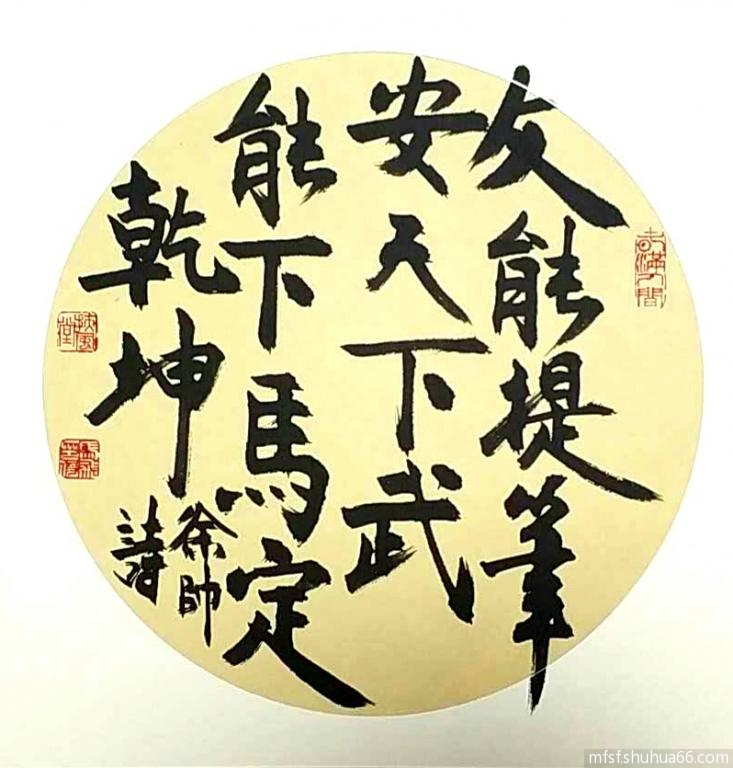 友能提筆
安天下武
能下馬定
乾坤
徐帥
mfsf.shuhua66.com